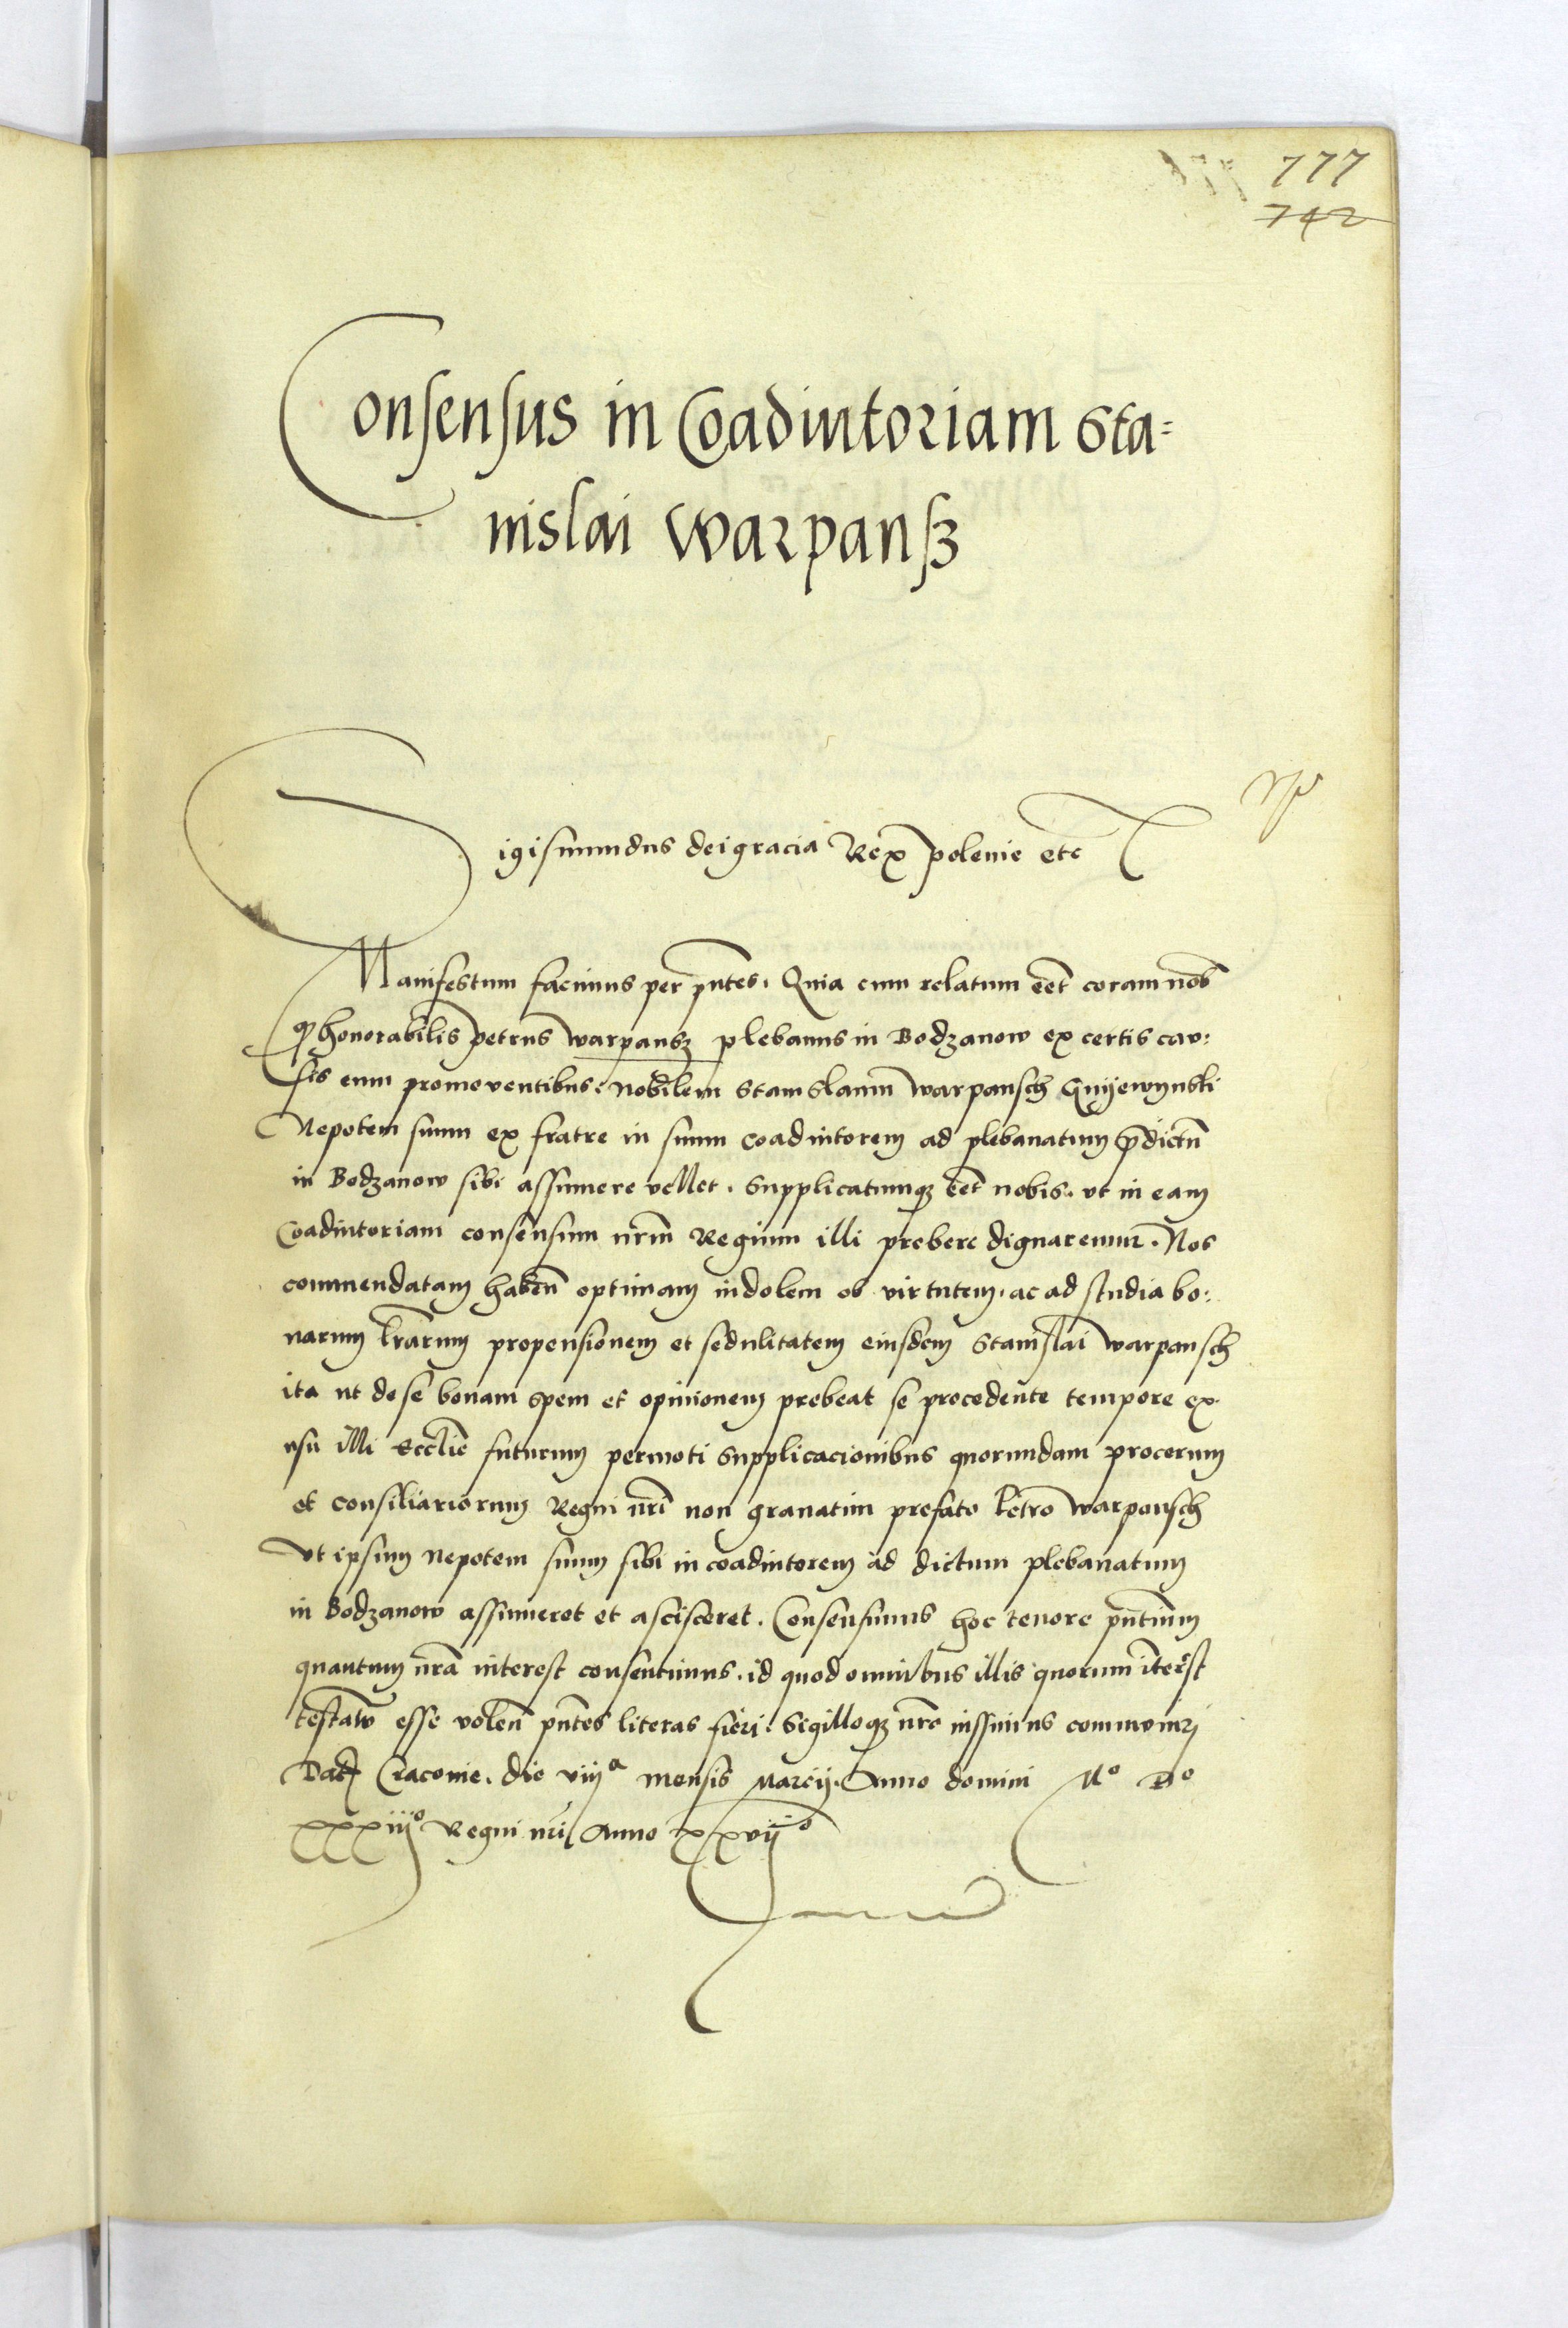 777
742
Consensus in Coadiutoriam Sta=
nislai Warpansz
Sigismundus dei gracia Rex polonie etc
Manifestum facimus per pntes. Quia cum relatum eet coram nob
q honorabilis petrus warpansz plebanus in Bodzanow ex certis cau:
sis eum promoventibus. nobilem Stanislaum warpansch Gnyewynski
Nepotem suum ex fratre in suum coadiutorem ad plebanatum pdictu
in Bodzanow sibi assumere vellet. Supplicatumq eet nobis. vt in eam
Coadiutoriam consensum nrm Regium illi prebere dignaremur. Nos
commendatam haben optimam indolem ob virtutem. ac ad studia bo:
narum lrarum propensionem et sedulitatem eiusdem Stanislai warpansch
ita ut de se bonam spem et opinionem prebeat se procedente tempore ex
usu illi Ecclie futurum permoti supplicacionibus quorundam procerum
et consiliariorum Regni nri non gravatim prefato Petro warpansch
Vt ipsum nepotem suum sibi in coadiutorem ad dictum plebanatum
in Bodzanow assumeret et ascisceret. Consensimus hoc tenore pntium
quantum nra interest consentimus. id quod omnibus illis quorum iterest
testatu esse volen pntes literas fieri. Sigilloq nro iussimus communiri
Dat Cracovie. die viij a mensis Marcij. Anno domini Mo Do
xxxiijo Regni nri Anno xxvijo